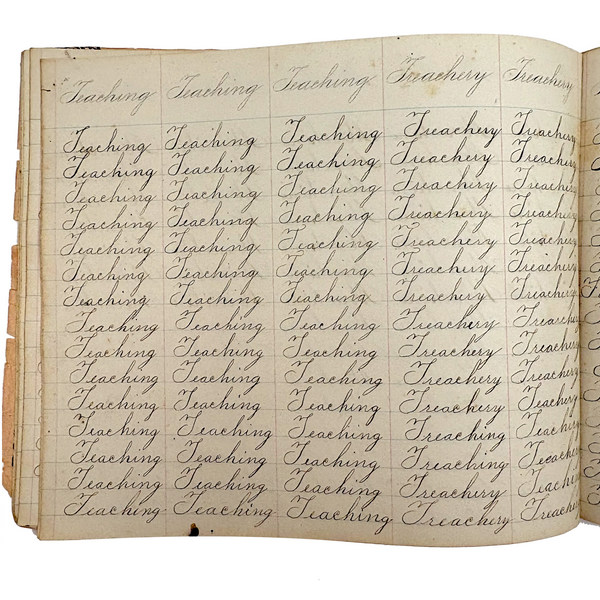 Teaching Teaching Teaching Treachery Treachery
Teaching Teaching Teaching Treachery Treachery
Teaching Teaching Teaching Treachery Treachery
Teaching Teaching Teaching Treachery Treachery
Teaching Teaching Teaching Treachery Treachery
Teaching Teaching Teaching Treachery Treachery
Teaching Teaching Teaching Treachery Treachery
Teaching Teaching Teaching Treachery Treachery
Teaching Teaching Teaching Treachery
Teaching Teaching Teaching Treachery Treachery
Teaching Teaching Teaching Treachery Treachery
Teaching Teaching Teaching Treackery
Teaching Teaching Teaching Treaching
Teaching Teaching Teaching Treaching
Teaching Teaching Teaching Treachery
Teaching Teaching Teaching Treachery Treachery